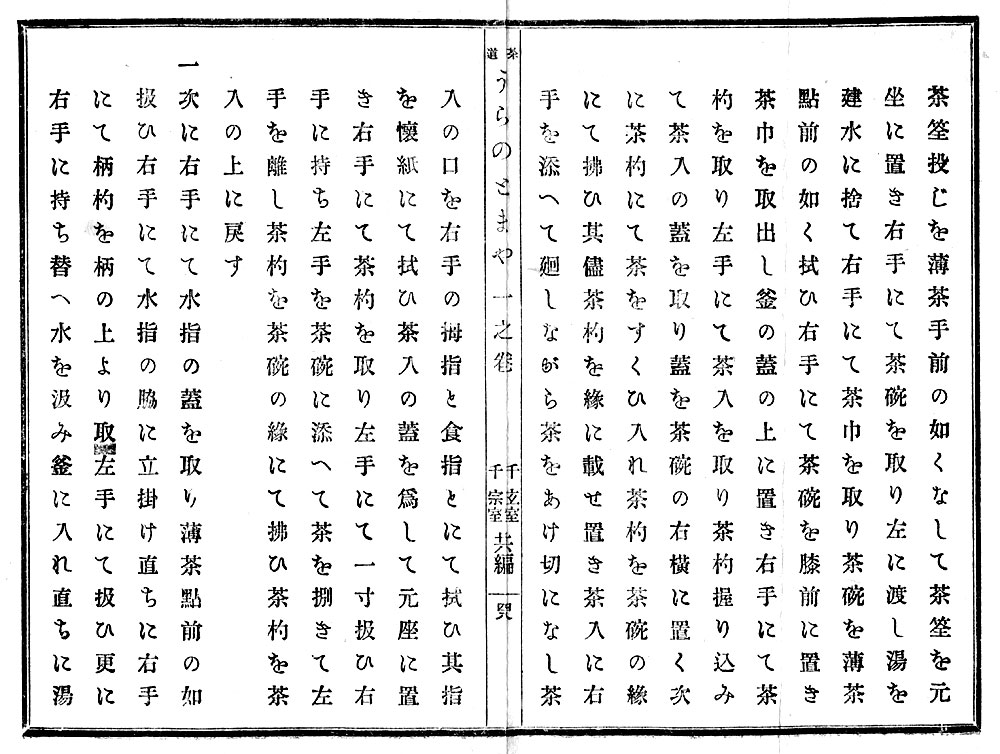 茶筌投じを薄茶手前の如くなして茶筌を元
坐に置き右手にて茶碗を取り左に渡し湯を
建水に捨て右手にて茶巾を取り茶碗を薄茶
點前の如く拭ひ右手にて茶碗を膝前に置き
茶巾を取出し釜の蓋の上に置き右手にて茶
杓を取り左手にて茶入を取り茶杓握り込み
て茶入の蓋を取り蓋を茶碗の右横に置く次
に茶杓にて茶をすくひ入れ茶杓を茶碗の緣
にて拂ひ其儘茶杓を緣に載せ置き茶入に右
手を添へて廻しながら茶をあけ切になし茶
茶道うらのとまや一之卷 千玄室 千宗室 共編 一 四九
入の口を右手の拇指と食指とにて拭ひ其指
を懷紙にて拭ひ茶入の蓋を爲して元座に置
き右手にて茶杓を取り左手にて一寸扱ひ右
手に持ち左手を茶碗に添へて茶を捌きて左
手を離し茶杓を茶碗の緣にて拂ひ茶杓を茶
入の上に戾す
一次に右手にて水指の蓋を取り薄茶點前の如
扱ひ右手にて水指の脇に立掛け直ちに右手
にて柄杓を柄の上より取左手にて扱ひ更に
右手に持ち替へ水を汲み釜に入れ直ちに湯